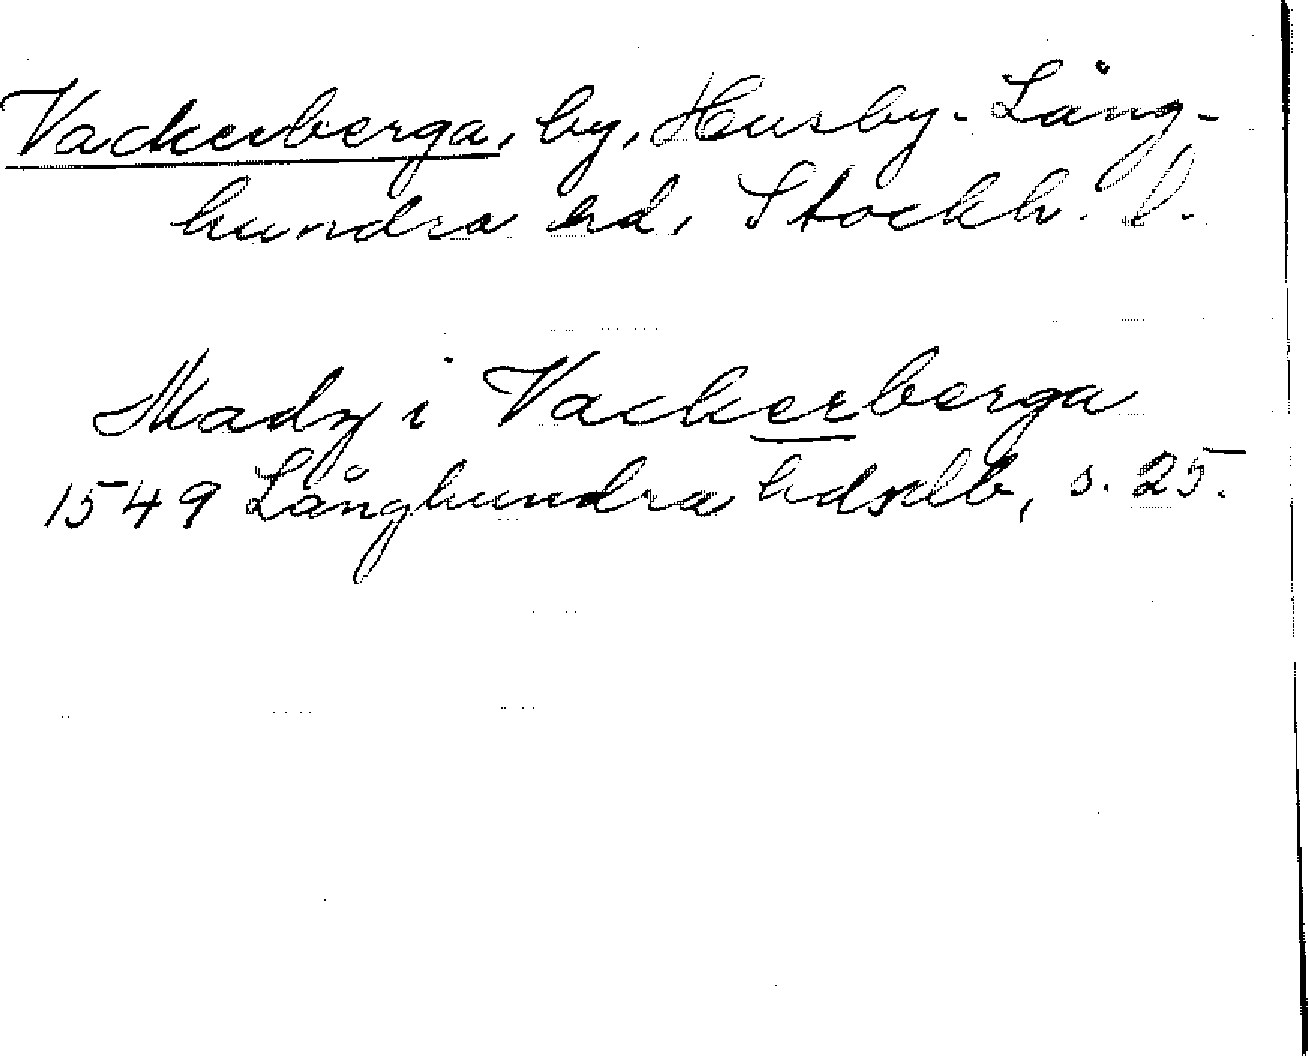 Vackerberga, by, Husby-Lång-
hundra hd, Stockh. l.
Madz i Vackerberga
1549 Långhundra hdsdb, s. 25.